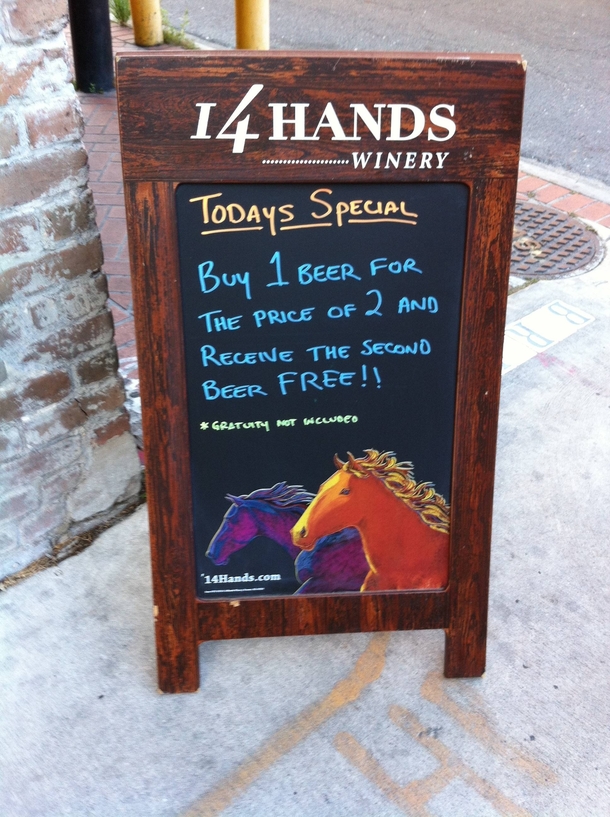 14 HANDS
WINERY
TODAYS SPECIAL
BUY 1 BEER FOR
THE PRICE OF 2 AND
RECEIVE THE SECOND
BEER FREE!!
* GRATUITY NOT INCLUDED
14Hands.com